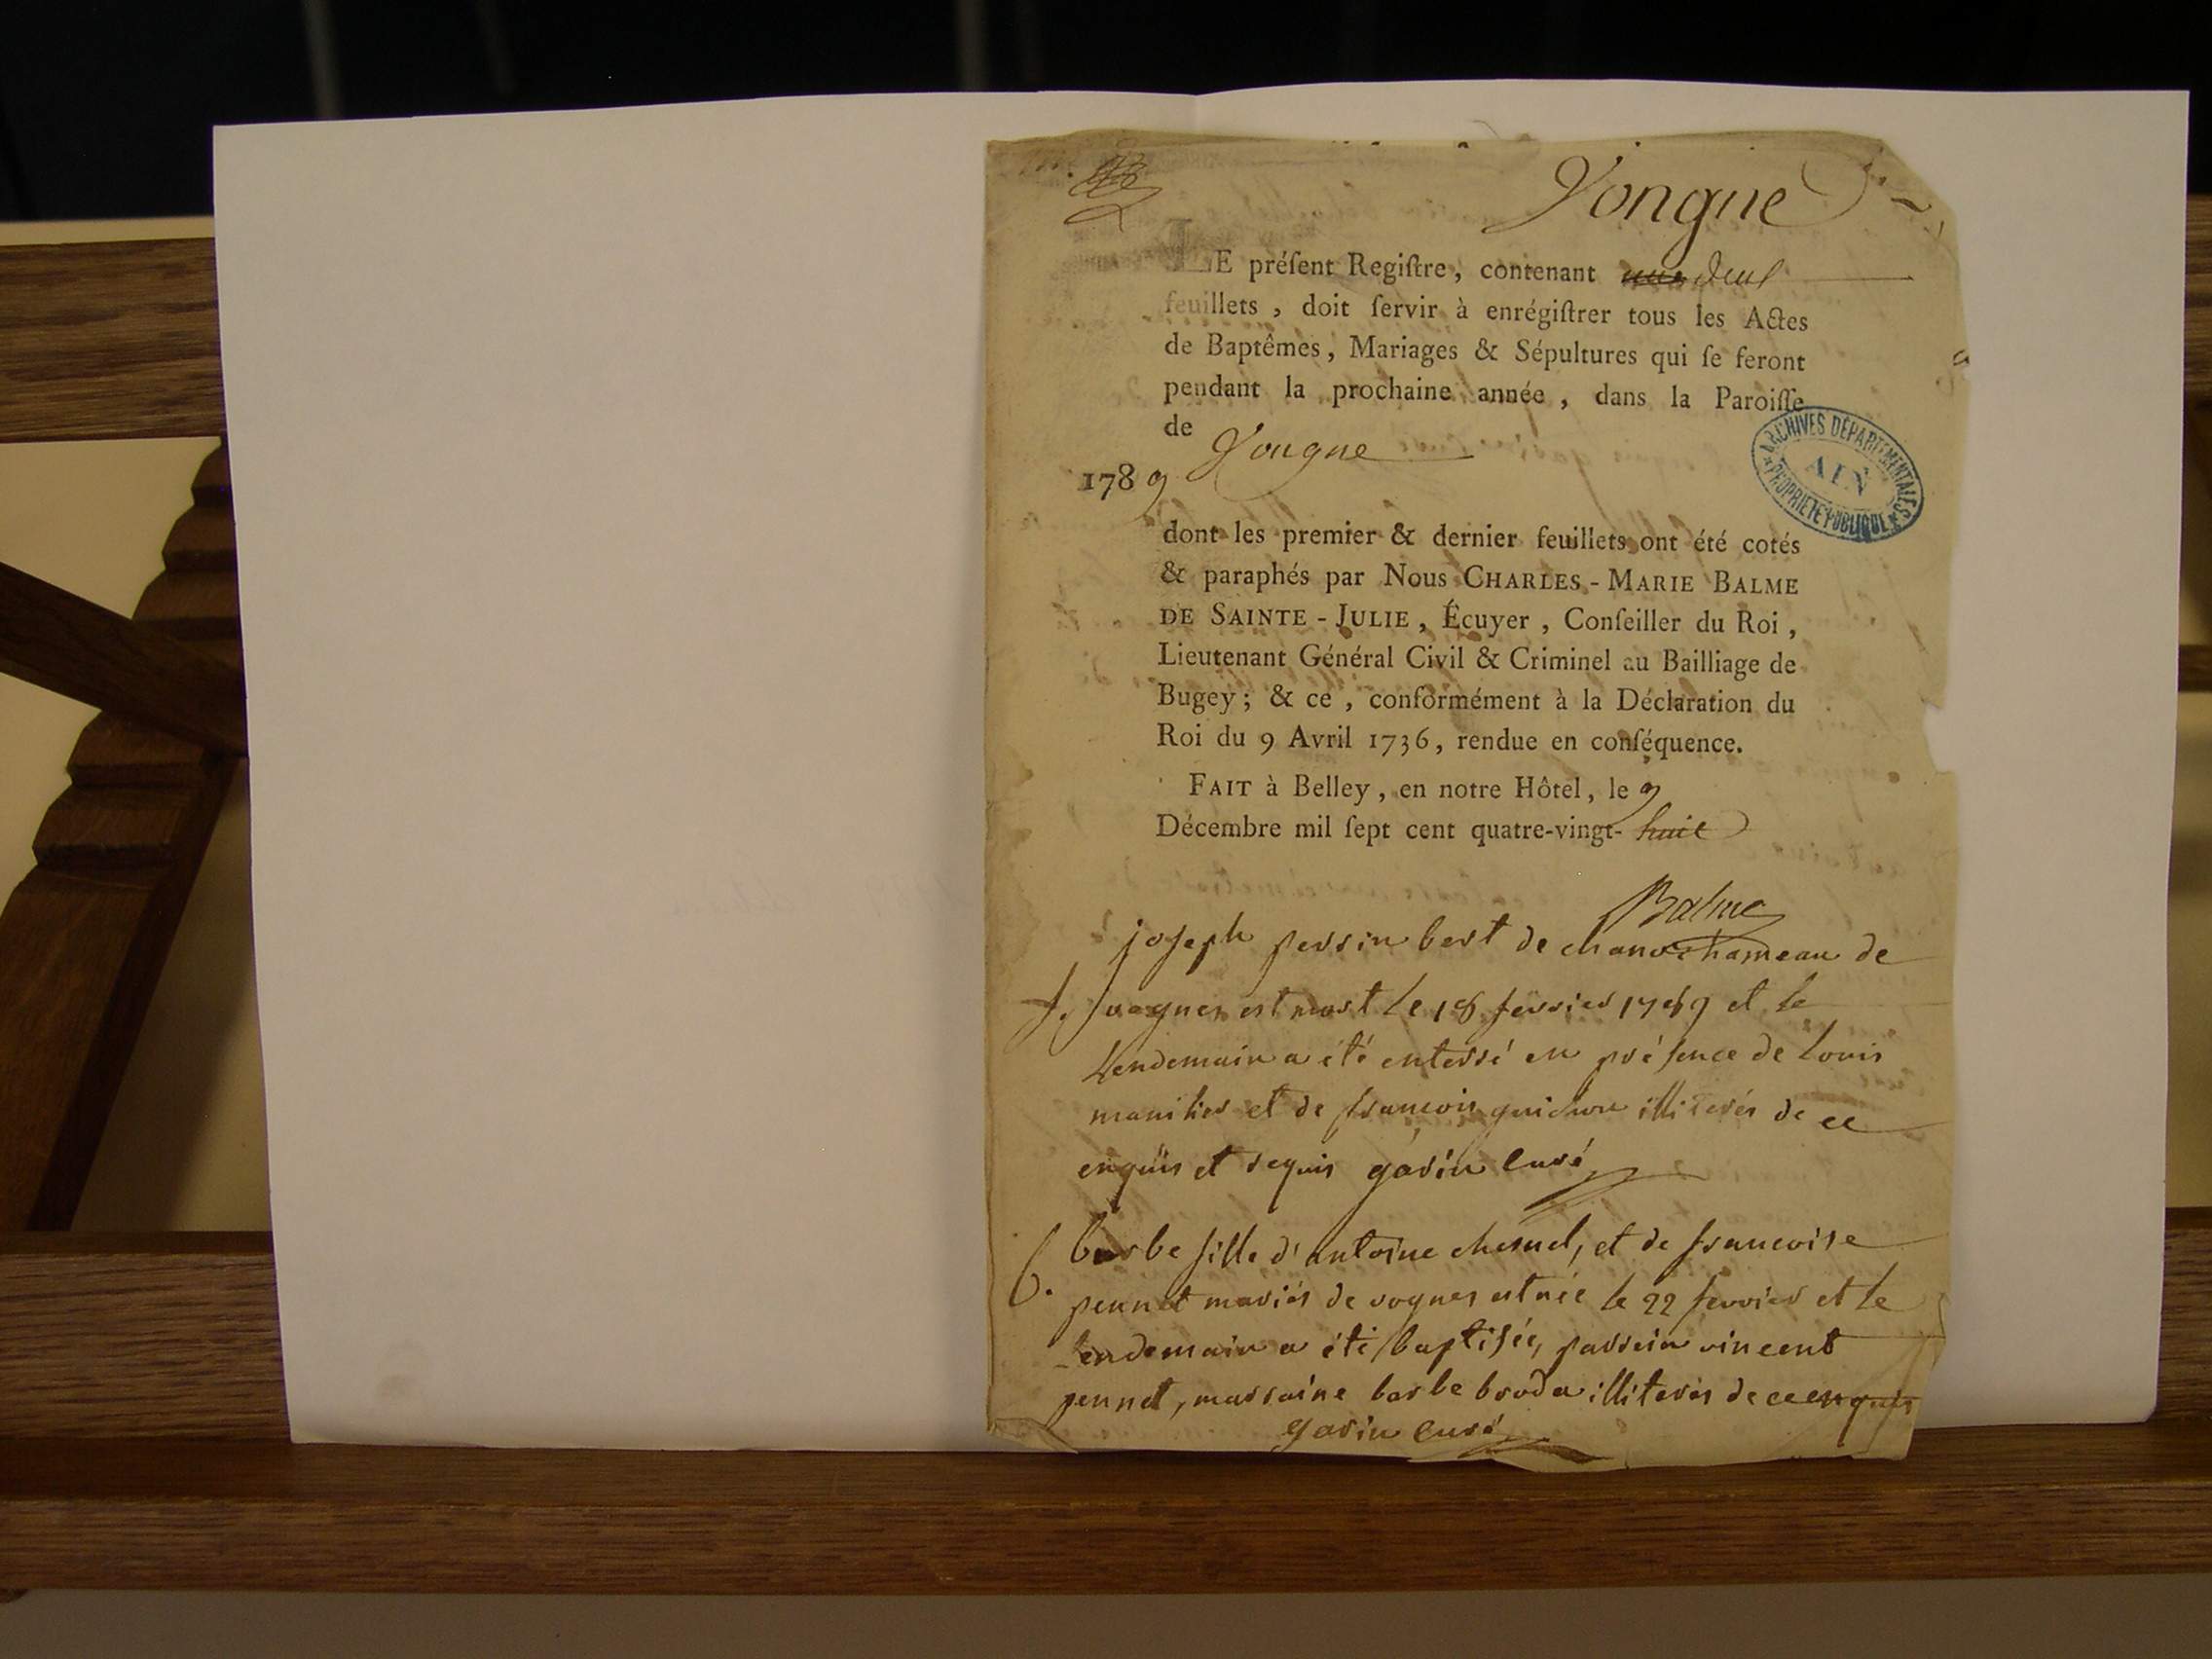 Vongne
LE préſent Regiſtre, contenant deux
feuillets, doit ſervir à enrégiſtrer tous les Actes
de Baptêmes, Mariages & Sépultures qui ſe feront
pendant la prochaine année, dans la Paroiſſe
de Vongne
1789
ARCHIVES DÉPARTEMENTALES
AIN
PROPRIÉTÉ PUBLIQUE
dont les premier & dernier feuillets ont été cotés
& paraphés par Nous CHARLES-MARIE BALME
DE SAINTE-JULIE, Écuyer, Conſeiller du Roi,
Lieutenant Général Civil & Criminel au Bailliage de
Bugey; & ce, conformément à la Déclaration du
Roi du 9 Avril 1736, rendue en conſéquence.
FAIT à Belley, en notre Hôtel, le 9
Décembre mil ſept cent quatre-vingt-huit
Balme
joseph perrin bert de hameau de
est mort le 18 fevrier 1789 et le
lendemain a été enterré en présence de louis
et de francois illiterés de ce
enquis et requis gavin curé
b. barbe fille d'antoine et de francoise
pennet mariés de vognes est née le 22 fevrier et le
lendemain a été baptisée, parrein vincent
pennet, marraine barbe broda illiterés de ce enquis
gavin curé